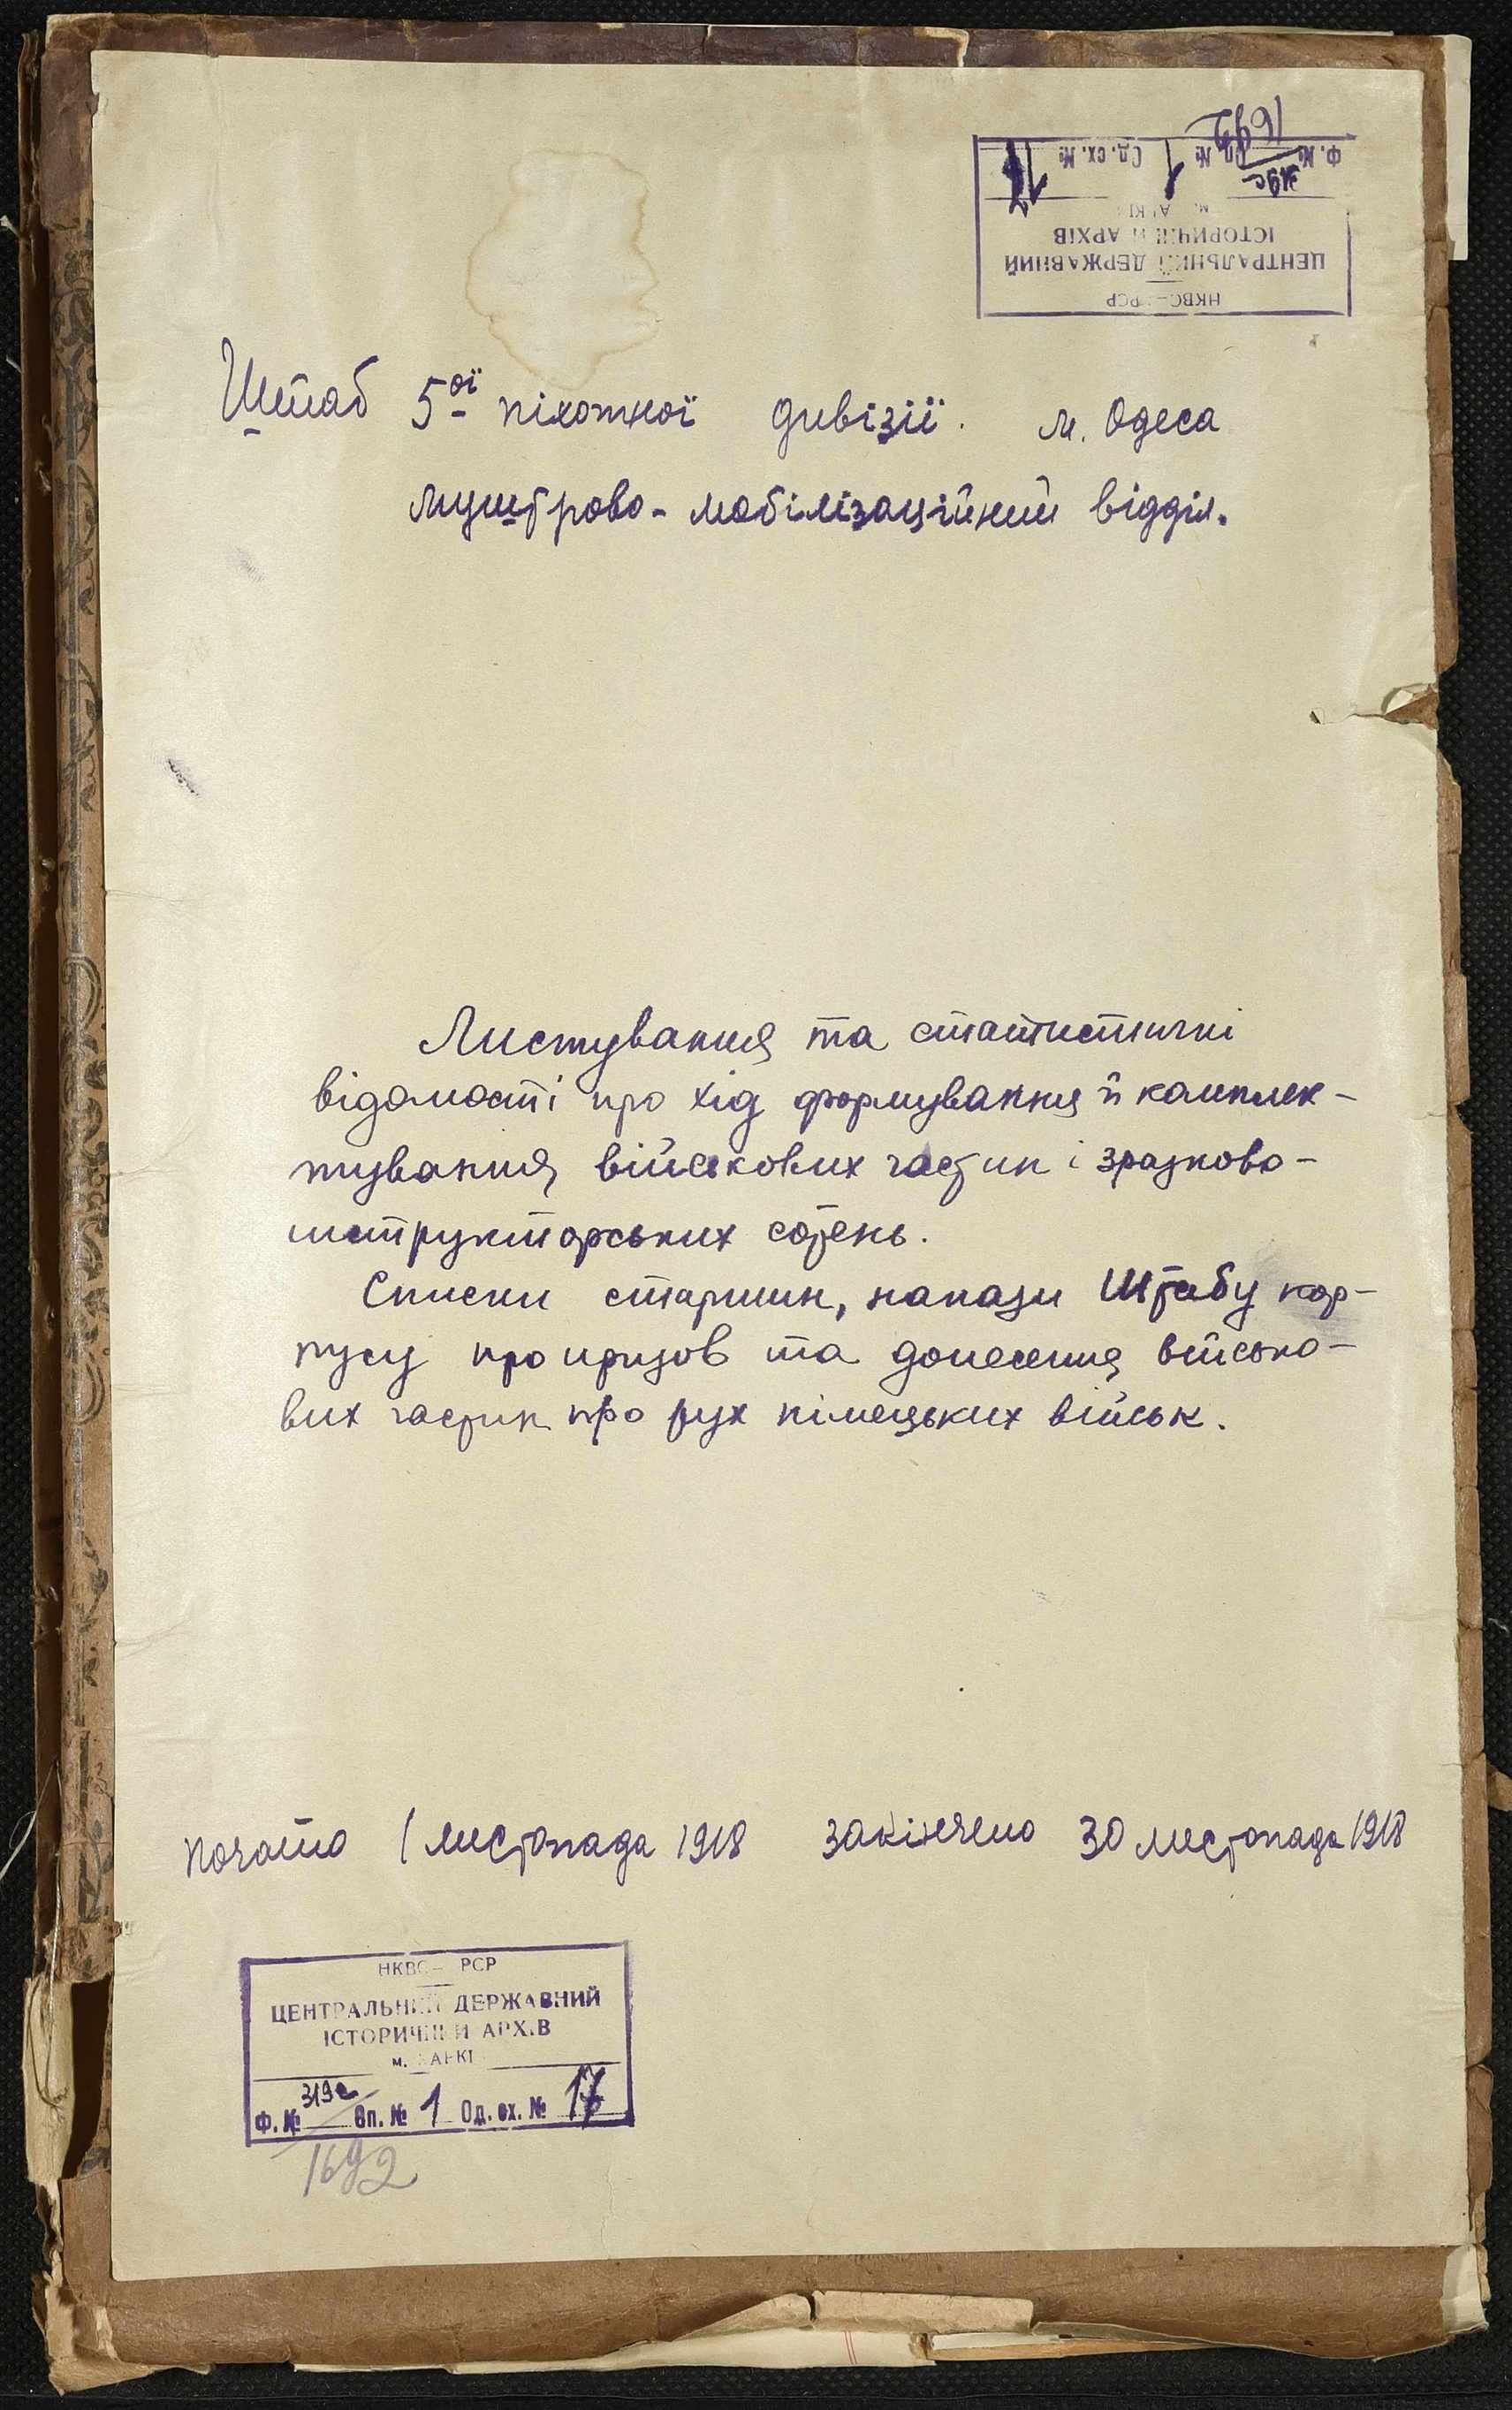 НКВС— РСР
ЦЕНТРАЛЬНИЙ ДЕРЖАВНИЙ
ІСТОРИЧНИЙ АРХІВ
Ф. № 319с Оп. № 1 Од. сх. № 17
1692
Штаб 5ої піхотної дивізії. м. Одеса
Муштрово-мобілізаційний відділ.
Листування та статистичні
відомості про хід формування й комплек-
тування військових частин і зразково-
інструкторських сотень.
Списки старшин, накази Штабу кор-
пусу про призов та донесення військо-
вих частин про рух німецьких військ.
почато 1 листопада 1918 закінчено 30 листопада 1918
НКВС— РСР
ЦЕНТРАЛЬНИЙ ДЕРЖАВНИЙ
ІСТОРИЧНИЙ АРХІВ
Ф. № 319с Оп. № 1 Од. сх. № 17
1692